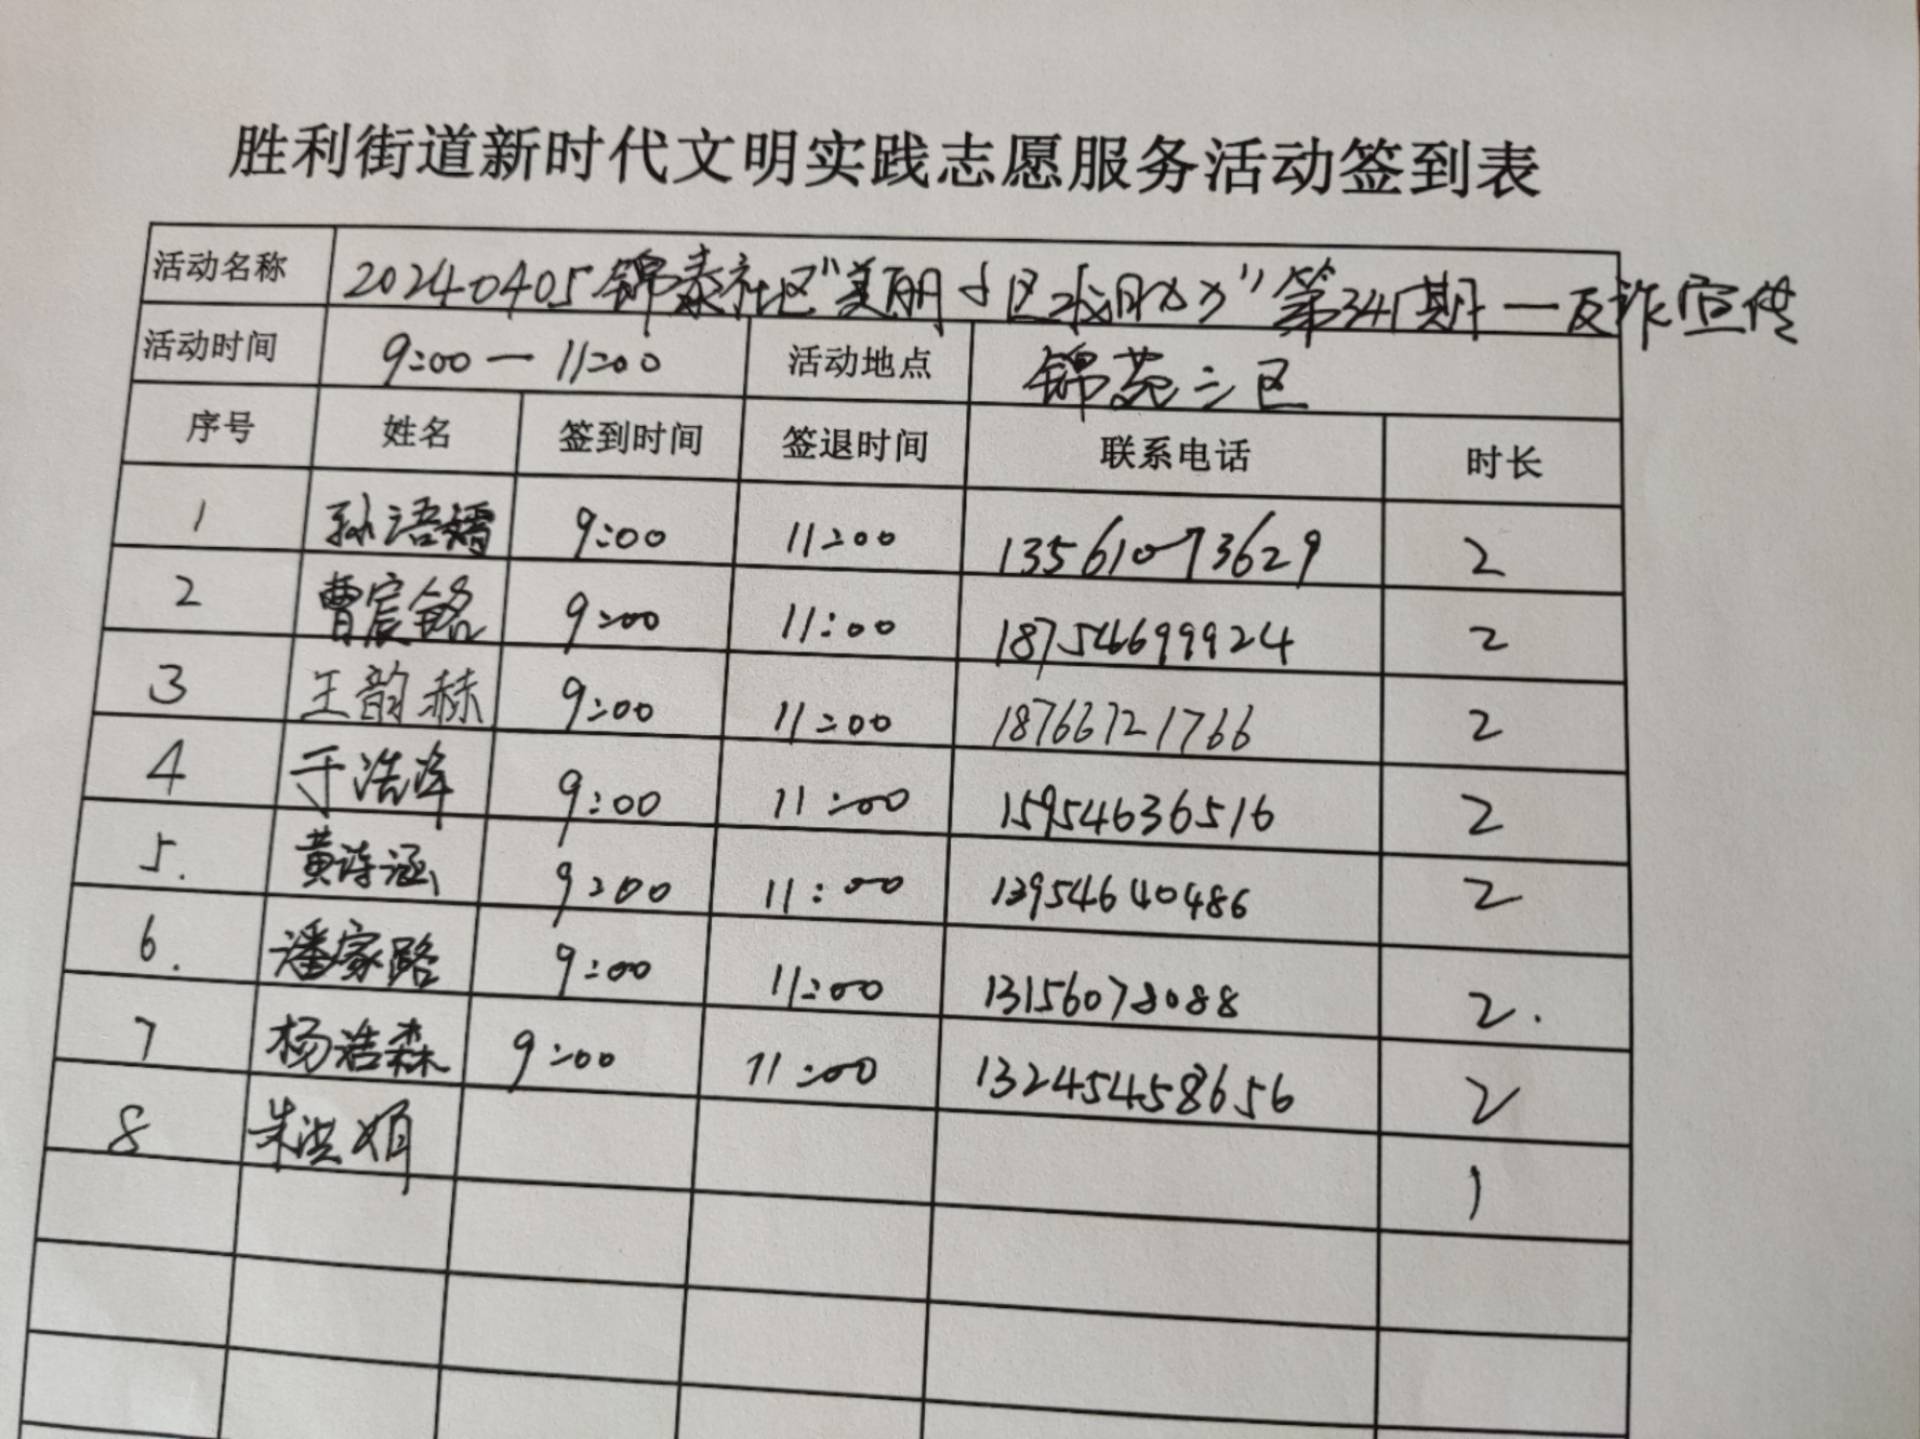 胜利街道新时代文明实践志愿服务活动签到表
活动名称 20240405锦泰社区“美丽小区我助力”第341期—反诈宣传
活动时间 9:00—11:00 活动地点 锦苑三区
序号 姓名 签到时间 签退时间 联系电话 时长
1 孙语嫣 9:00 11:00 13561073629 2
2 曹宸铭 9:00 11:00 18754699924 2
3 王韵赫 9:00 11:00 18766721766 2
4 于浩洋 9:00 11:00 15954636516 2
5. 黄诗涵 9:00 11:00 13954640486 2
6. 潘家路 9:00 11:00 13156078088 2.
7 杨浩森 9:00 11:00 13245458656 2
8 朱洪娟 1